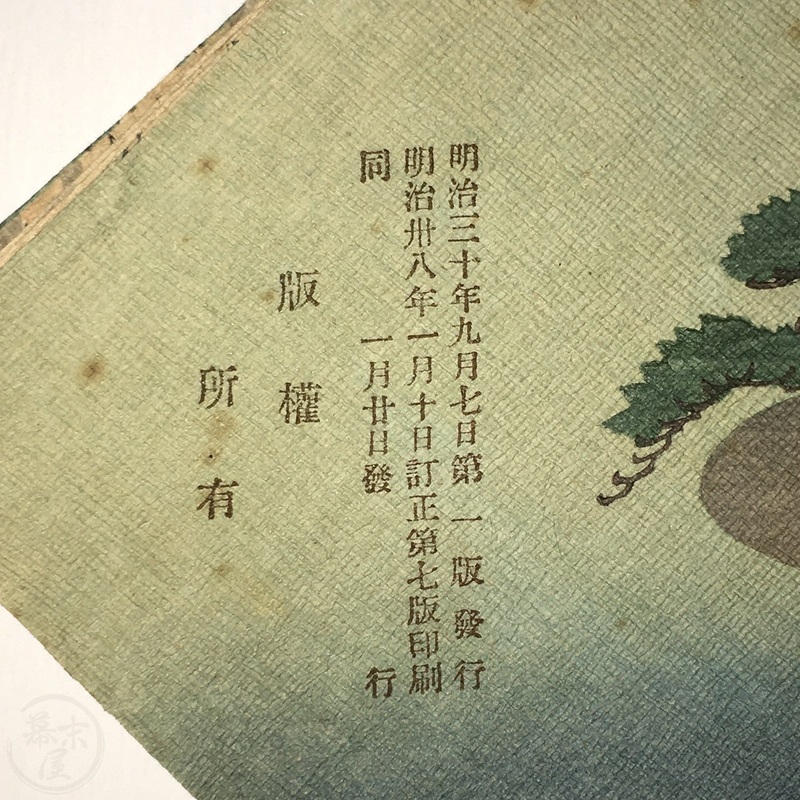 明治三十年九月七日第一版發行
明治卅八年一月十日訂正第七版印刷
同　　一月廿日發　　行
版權
所有
幕末屋